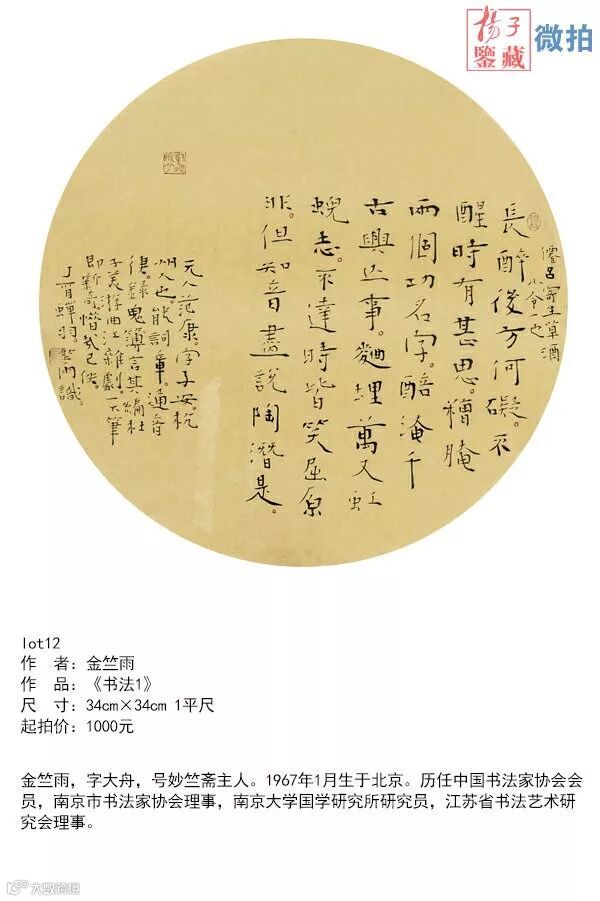 揚子
鑒藏
微拍
僊呂寄生草酒
小令一也
長醉後方何礙。不
醒時有甚思。糟腌
兩個功名字。醅淹千
古興亡事。麯埋萬丈虹
蜺志。不達時皆笑屈原
非。但知音盡說陶潛是。
元人范康。字子安。杭
州人也。能詞章。通音
律。錄鬼簿言其編杜
子美游曲江雜劇。下筆
即新奇。惜哉已佚。
丁酉蟬羽。竺雨識。
lot12
作 者：金竺雨
作 品：《书法1》
尺 寸：34cm×34cm 1平尺
起拍价：1000元
金竺雨，字大舟，号妙竺斋主人。1967年1月生于北京。历任中国书法家协会会
员，南京市书法家协会理事，南京大学国学研究所研究员，江苏省书法艺术研
究会理事。